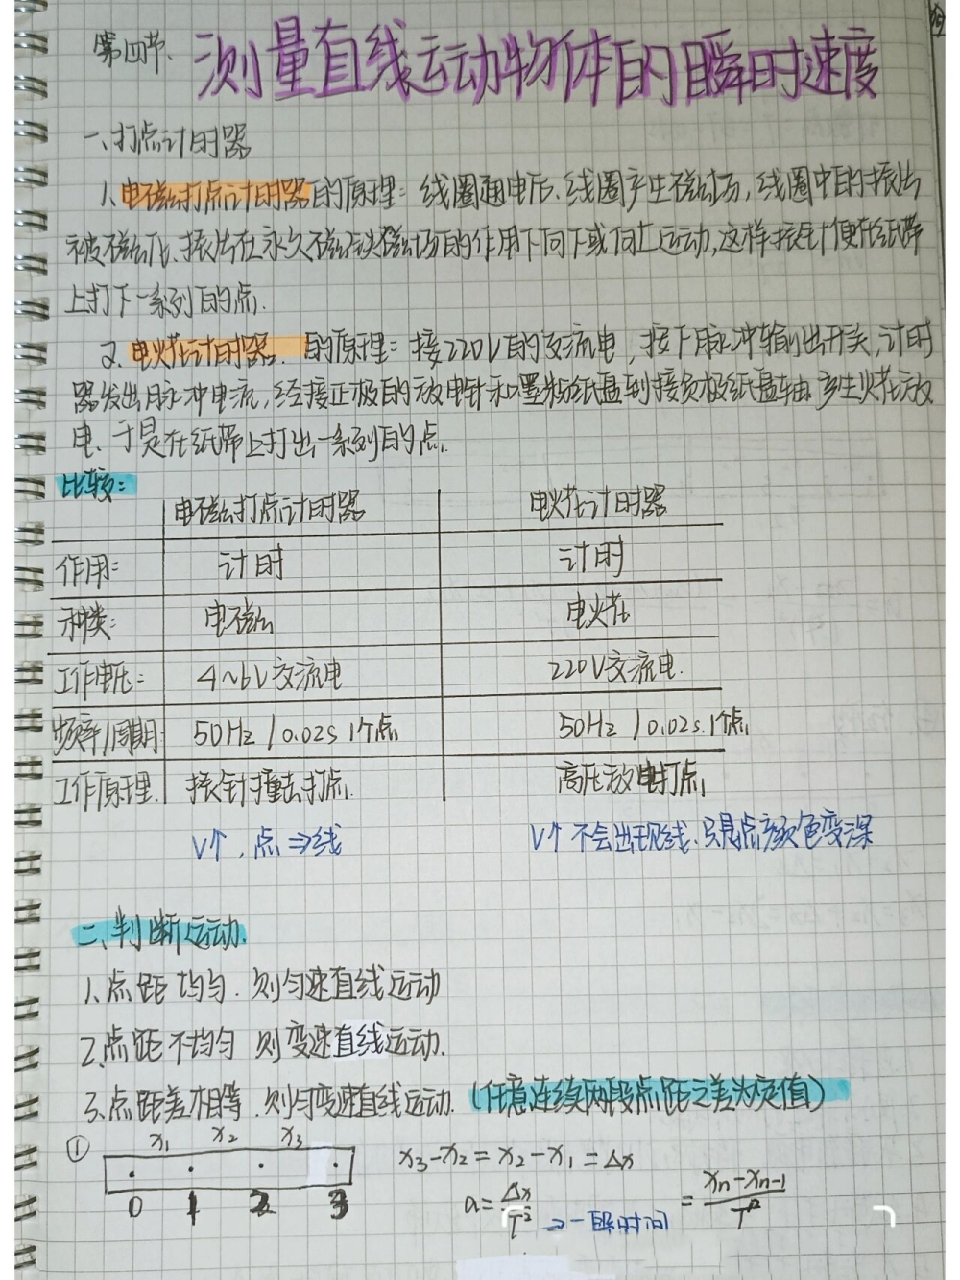 第四节、测量直线运动物体的瞬时速度
一、打点计时器
1、电磁打点计时器的原理：线圈通电后、线圈产生磁场，线圈中的振片
被磁化、振片在永久磁铁磁场的作用下向下或向上运动，这样振针便在纸带
上打下一系列的点.
2、电火花计时器、的原理：接220V的交流电，按下脉冲输出开关，计时
器发出脉冲电流，经接正极的放电针和墨粉纸盘到接负极纸盘轴，产生火花放
电、于是在纸带上打出一系列的点.
比较：
电磁打点计时器 电火花计时器
作用： 计时 计时
种类： 电磁 电火花
工作电压： 4~6V交流电 220V交流电.
频率/周期 50Hz / 0.02s 1个点 50Hz / 0.02s.1个点
工作原理 振针撞击打点. 高压放电打点
V↑，点⇒线 V↑ 不会出现线、只是点颜色变深
二、判断运动
1、点距均匀.则匀速直线运动
2.点距不均匀 则变速直线运动.
3、点距差相等.则匀变速直线运动.(任意连续两段点距之差为定值)
① x₁ x₂ x₃
0 1 2 3
x₃-x₂=x₂-x₁=Δx
a=Δx/T² →一段时间 =(xₙ-xₙ₋₁)/T²